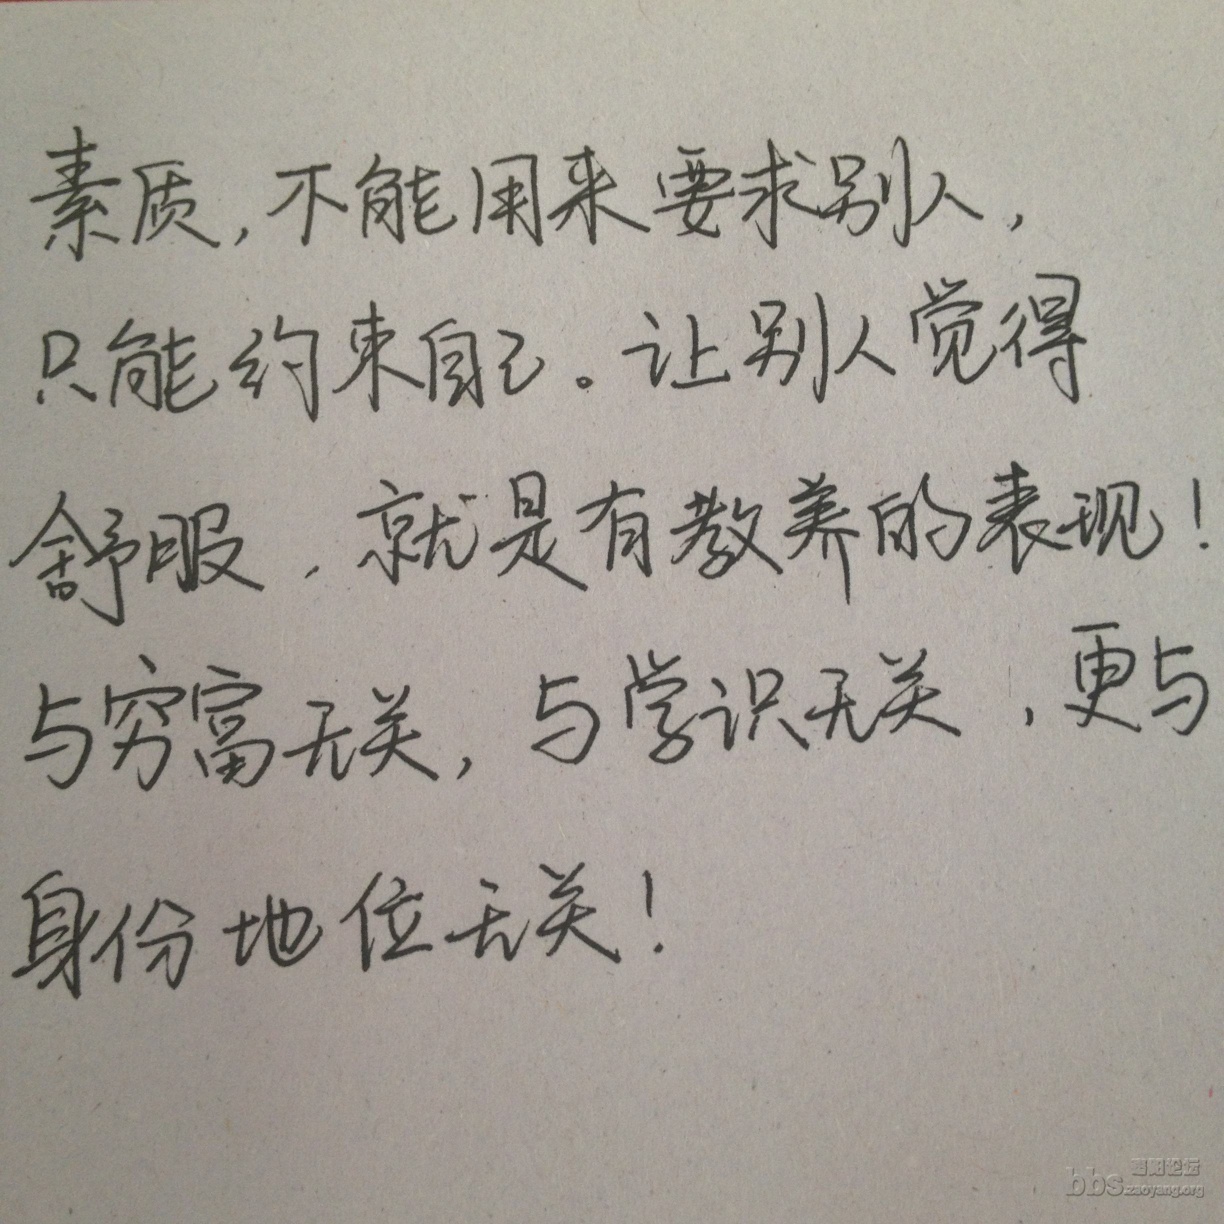 素质,不能用来要求别人,
只能约束自己。让别人觉得
舒服,就是有教养的表现!
与穷富无关,与学识无关,更与
身份地位无关!
枣阳论坛
bbs.zaoyang.org